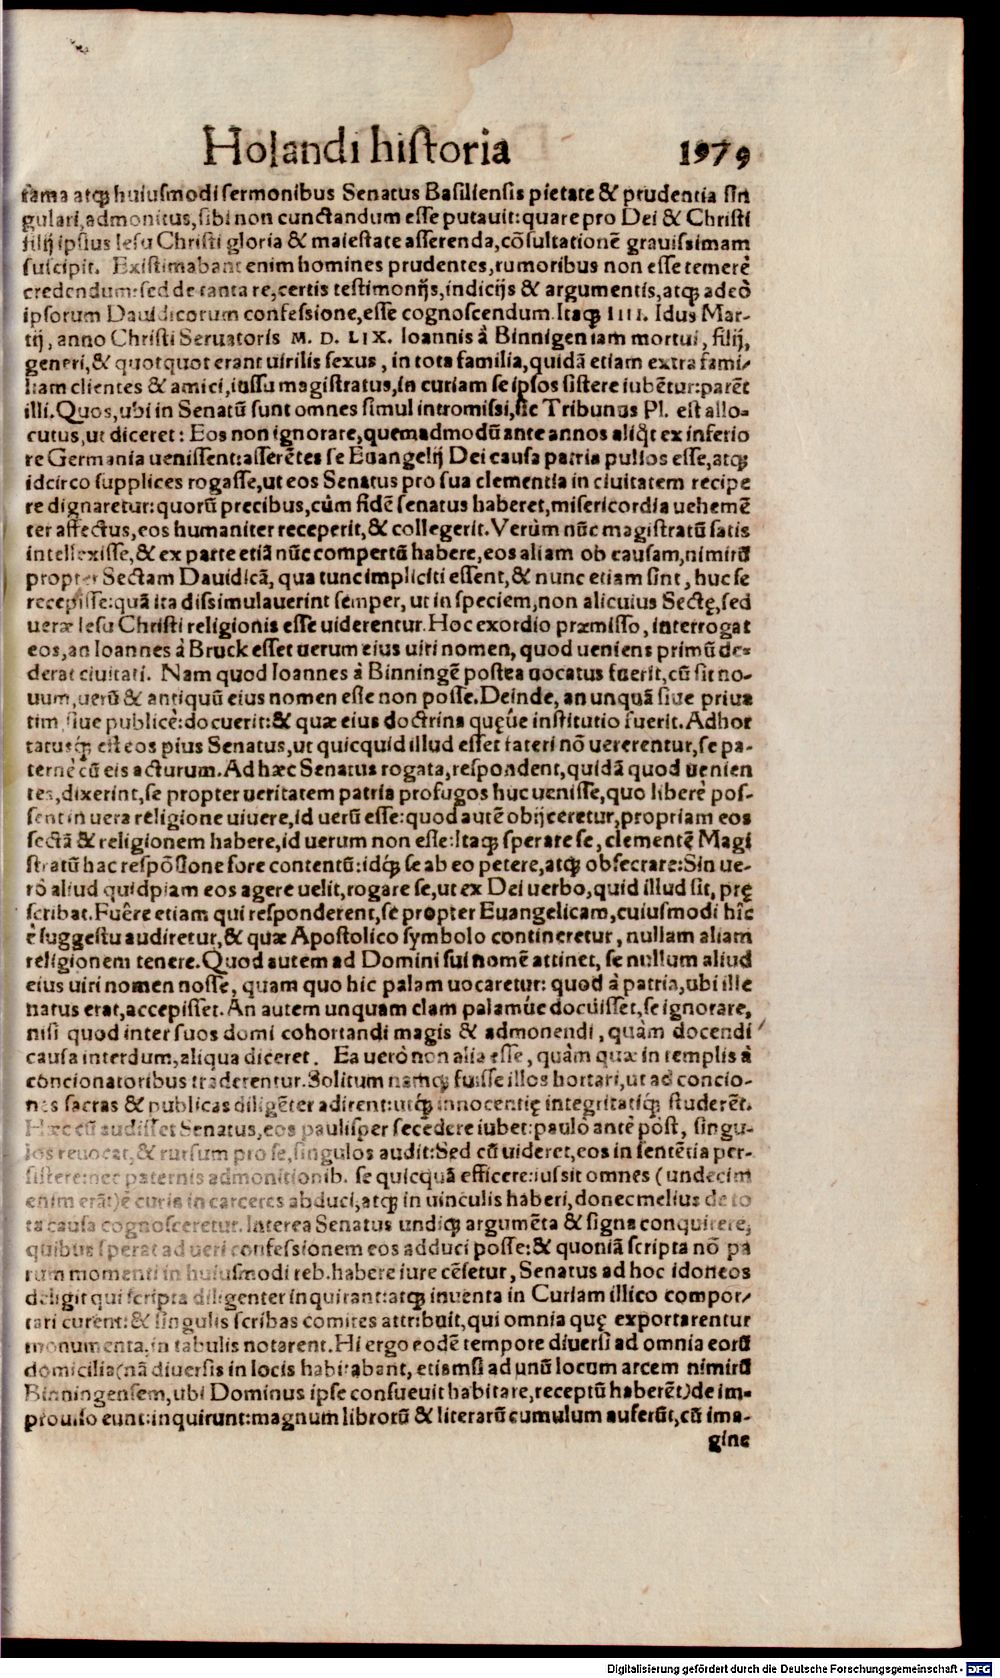 Holandi historia 1979
fama atq́; huiusmodi sermonibus Senatus Basiliensis pietate & prudentia sin
gulari, admonitus, sibi non cunctandum esse putauit: quare pro Dei & Christi
filij ipsius Iesu Christi gloria & maiestate asserenda, cōsultationē grauissimam
suscipit. Existimabant enim homines prudentes, rumoribus non esse temerè
credendum: sed de tanta re, certis testimonijs, indicijs & argumentis, atq; adeò
ipsorum Dauidicorum confessione, esse cognoscendum. Itaq; IIII. Idus Mar-
tij, anno Christi Seruatoris M. D. LIX. Ioannis à Binnigen iam mortui, filij,
generi, & quotquot erant uirilis sexus, in tota familia, quidā etiam extra fami-
liam clientes & amici, iussu magistratus, in curiam se ipsos sistere iubētur: parēt
illi. Quos, ubi in Senatū sunt omnes simul intromissi, sic Tribunus Pl. est allo-
cutus, ut diceret: Eos non ignorare, quemadmodū ante annos aliq̃t ex inferio
re Germania uenissent: asserētes se Euangelij Dei causa patria pulsos esse, atq;
idcirco supplices rogasse, ut eos Senatus pro sua clementia in ciuitatem recipe
re dignaretur: quorū precibus, cùm fidē senatus haberet, misericordia uehemē
ter affectus, eos humaniter receperit, & collegerit. Verùm nūc magistratū satis
intellexisse, & ex parte etiā nūc compertū habere, eos aliam ob causam, nimirū
propter Sectam Dauidicā, qua tunc impliciti essent, & nunc etiam sint, huc se
recepisse: quā ita dissimulauerint semper, ut in speciem, non alicuius Sectę, sed
ueræ Iesu Christi religionis esse uiderentur. Hoc exordio præmisso, interrogat
eos, an Ioannes à Bruck esset uerum eius uiri nomen, quod ueniens primū de-
derat ciuitati. Nam quod Ioannes à Binningē postea uocatus fuerit, cū sit no-
uum, uerū & antiquū eius nomen esse non posse. Deinde, an unquā siue priua
tim, siue publicè: docuerit: & quæ eius doctrina quęûe institutio fuerit. Adhor
tatusq́; est eos pius Senatus, ut quicquid illud esset fateri nō uererentur, se pa-
ternè cū eis acturum. Ad hæc Senatus rogata, respondent, quidā quod uenien
tes, dixerint, se propter ueritatem patria profugos huc uenisse, quo liberè pos-
sent in uera religione uiuere, id uerū esse: quod autē obijceretur, propriam eos
sectā & religionem habere, id uerum non esse: Itaq; sperare se, clementē Magi
stratū hac respōsione fore contentū: idq́; se ab eo petere, atq; obsecrare: Sin ue-
rò aliud quidpiam eos agere uelit, rogare se, ut ex Dei uerbo, quid illud sit, prę
scribat. Fuêre etiam qui responderent, se propter Euangelicam, cuiusmodi hîc
è suggestu audiretur, & quæ Apostolico symbolo contineretur, nullam aliam
religionem tenere. Quod autem ad Domini sui nomē attinet, se nullum aliud
eius uiri nomen nosse, quam quo hic palam uocaretur: quod à patria, ubi ille
natus erat, accepisset. An autem unquam clam palamûe docuisset, se ignorare,
nisi quod inter suos domi cohortandi magis & admonendi, quàm docendi
causa interdum, aliqua diceret. Ea uerò non alia esse, quàm quæ in templis à
concionatoribus traderentur. Solitum namq; fuisse illos hortari, ut ad concio-
nes sacras & publicas diligēter adirent: utq́; innocentię integritatiq́; studerēt.
Hæc cū audisset Senatus, eos paulisper secedere iubet: paulò antè pòst, singu-
los reuocat, & rursum pro se, singulos audit: Sed cū uideret, eos in sentētia per-
sistere: nec paternis admonitionib. se quicquā efficere: iussit omnes (undecim
enim erāt) è curia in carceres abduci, atq; in uinculis haberi, donec melius de to
ta causa cognosceretur. Interea Senatus undiq; argumēta & signa conquirere,
quibus sperat ad ueri confessionem eos adduci posse: & quoniā scripta nō pa
rum momenti in huiusmodi reb. habere iure cēsetur, Senatus ad hoc idoneos
deligit qui scripta diligenter inquirant: atq; inuenta in Curiam illico compor-
tari curent: & singulis scribas comites attribuit, qui omnia quę exportarentur
monumenta, in tabulis notarent. Hi ergo eodē tempore diuersi ad omnia eorū
domicilia (nā diuersis in locis habitabant, etiamsi ad unū locum arcem nimirū
Binningensem, ubi Dominus ipse consueuit habitare, receptū haberēt) de im-
prouiso eunt: inquirunt: magnum librorū & literarū cumulum auferūt, cū ima-
gine
Digitalisierung gefördert durch die Deutsche Forschungsgemeinschaft - DFG